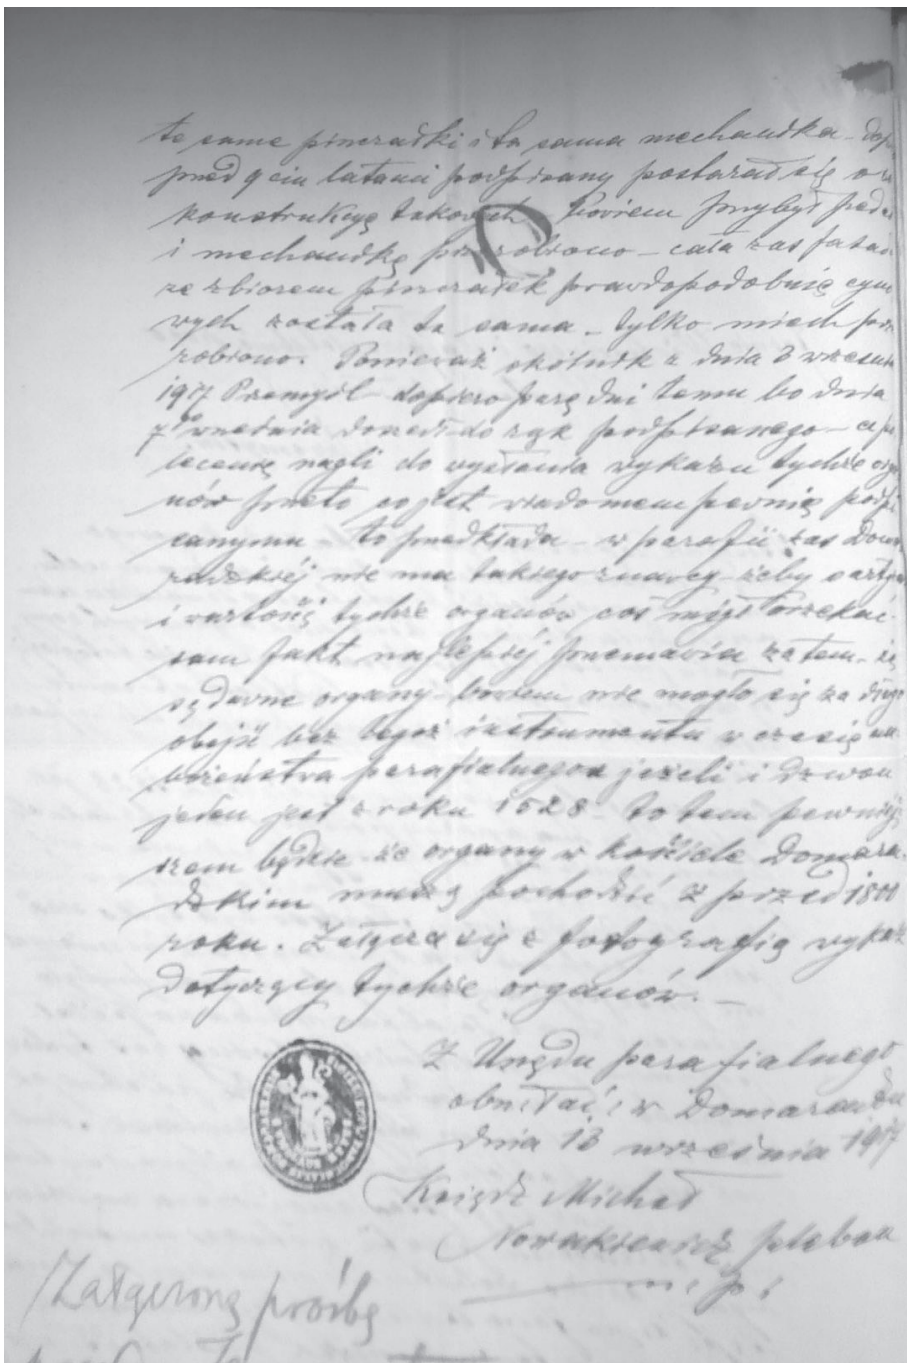 te same piszczałki i ta sama mechanika – dop
przed 9ciu latami podpisany postarał się o re
konstrukcyę takowych bowiem przybył peda
i mechanikę przerobiono – cała zaś fasa
ze zbiorem piszczałek prawdopodobnie cyno
wych została ta sama – tylko miech prze
robiono. Ponieważ okólnik z dnia 3 września
1917 Przemyśl – dopiero parę dni temu bo dnia
7go września doszedł do rąk podpisanego – a po
lecenie nagli do wysłania wykazu tychże orga
nów przeto co jest wiadomem pewnie podpi
sanymu to przedkłada – w parafii zaś Doma
radzkiéj nie ma takiego znawcy – żeby o
i wartości tychże organów coś mógł orzekać
sam fakt najlepiéj przemawia za tem – że
są dawne organy – bowiem nie mogło się za
obejść bez tegoż instrumentu w czasie na
bożeństwa parafialnego a jeżeli i dzwon
jeden jest z roku 1528 – to tem pewniéj
szem będzie że organy w kościele Domara
dzkim muszą pochodzić z przed 1800
roku. Załącza się z fotografią wykaz
dotyczący tychże organów. –
Z Urzędu parafialnego
obrz łać: w Domaradzu
dnia 13 września 1917
Ksiądz Michał
Nowakiewicz pleban
m. p.
Załączoną prośbę